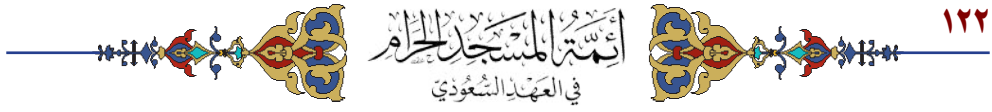 ١٢٢
أَئِمَّةُ المَسْجِدِ الحَرَامِ
فِي العَهْدِ السُّعُودِيِّ